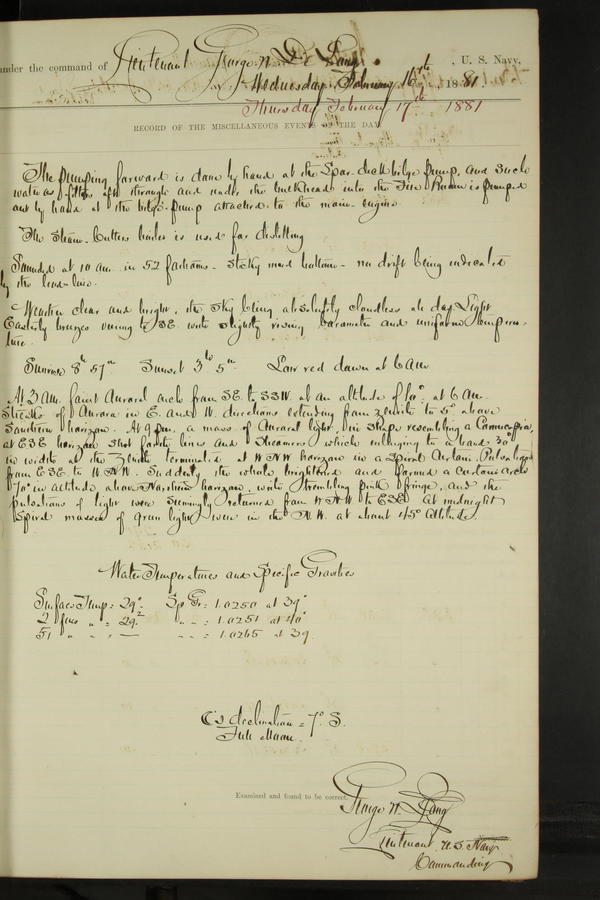 under the command of Lieutenant George W. De Long, U. S. Navy,
Wednesday, February 16th, 1881.
Thursday February 17th 1881
RECORD OF THE MISCELLANEOUS EVENTS OF THE DAY.
The pumping forward is done by hand at the Spar-deck bilge pump, and such
water as filters aft through and under the bulkhead into the Fire Room is pumped
out by hand at the bilge-pump attached to the main-engine
The Steam-Cutters boiler is used for distilling
Sounded at 10 am. in 52 fathoms - Sticky mud bottom - no drift being indicated
by the lead-line.
Weather clear and bright, the sky being absolutely cloudless all day. Light
Easterly breezes veering to SE. with slightly rising barometer and uniform tempera-
ture.
Sunrise 8h 57m Sunset 3h 5m Low red dawn at 6 am.
At 3 AM. faint Auroral arch from SE. to SSW. at an altitude of 10°; at 6 am.
Streaks of Aurora in E. and W. directions extending from zenith to 5° above
Southern horizon. At 9 pm. a mass of Auroral light, in shape resembling a
at ESE horizon shot faint lines and Streamers which enlarging to a band 30°
in width at the Zenith terminated at WNW horizon in a Spiral Curtain. Pulsations
from ESE to WNW. Suddenly the whole brightened and formed a curtain arch
70° in altitude above Northern horizon, with trembling pink fringe, and the
pulsations of light were seemingly returned from WNW to ESE. At midnight
Spiral masses of green light were in the N.W. at about 45° altitude.
Water Temperatures and Specific Gravities
Surface Temp = 29°. Sp Gr = 1.0250 at 39°
2 fms " = 29.2 " " = 1.0251 at 40°
51 " " = — " " = 1.0265 at 39
☾'s declination = 7° S.
Full Moon.
Examined and found to be correct.
George W. De Long
Lieutenant, U.S. Navy
Commanding